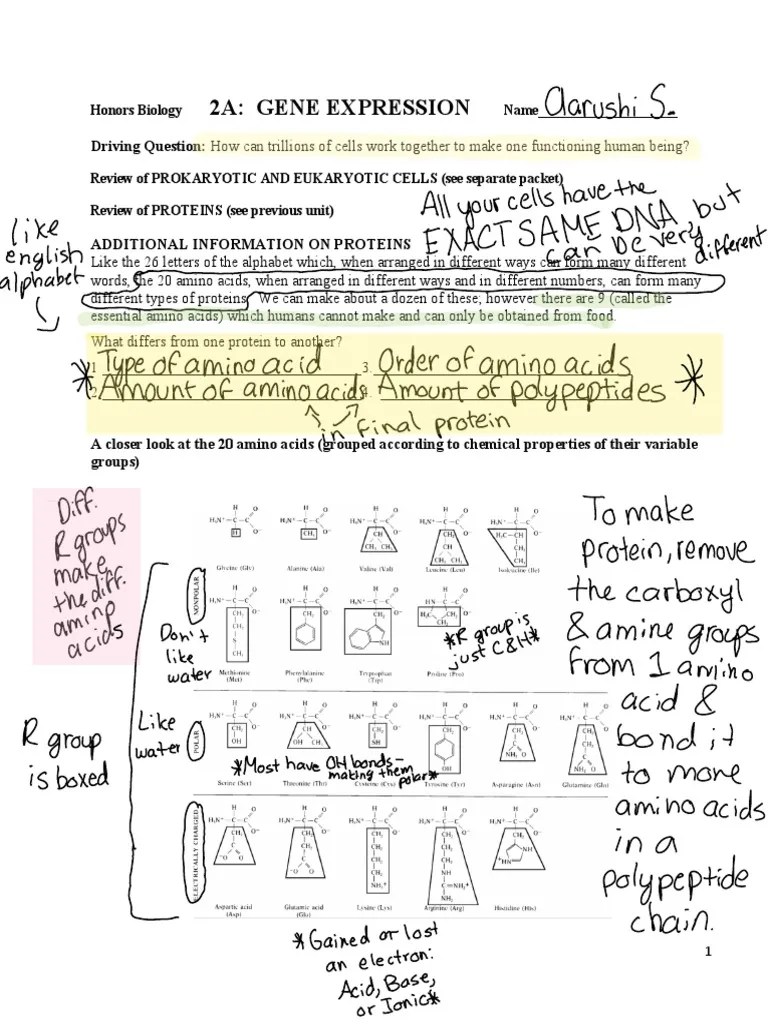 Honors Biology 2A: GENE EXPRESSION Name Aarushi S.
Driving Question: How can trillions of cells work together to make one functioning human being?
Review of PROKARYOTIC AND EUKARYOTIC CELLS (see separate packet)
Review of PROTEINS (see previous unit)
All your cells have the
EXACT SAME DNA, but
can be very
different
like
english
alphabet
ADDITIONAL INFORMATION ON PROTEINS
Like the 26 letters of the alphabet which, when arranged in different ways can form many different
words, the 20 amino acids, when arranged in different ways and in different numbers, can form many
different types of proteins. We can make about a dozen of these; however there are 9 (called the
essential amino acids) which humans cannot make and can only be obtained from food.
What differs from one protein to another?
1 Type of amino acid 3. Order of amino acids
* 2 Amount of amino acids 4. Amount of polypeptides *
in final protein
A closer look at the 20 amino acids (grouped according to chemical properties of their variable
groups)
Diff.
R groups
make
the diff.
amino
acids
Glycine (Gly) Alanine (Ala) Valine (Val) Leucine (Leu) Isoleucine (Ile)
NONPOLAR
Don't
like
water
*R group is
just C & H*
Methionine (Met) Phenylalanine (Phe) Tryptophan (Trp) Proline (Pro)
R group
is boxed
Like
water
POLAR
*Most have OH bonds-
making them
polar*
Serine (Ser) Threonine (Thr) Cysteine (Cys) Tyrosine (Tyr) Asparagine (Asn) Glutamine (Gln)
ELECTRICALLY CHARGED
Aspartic acid (Asp) Glutamic acid (Glu) Lysine (Lys) Arginine (Arg) Histidine (His)
*Gained or lost
an electron:
Acid, Base,
or Ionic*
To make
protein, remove
the carboxyl
& amine groups
from 1 amino
acid &
bond it
to more
amino acids
in a
polypeptide
chain.
1